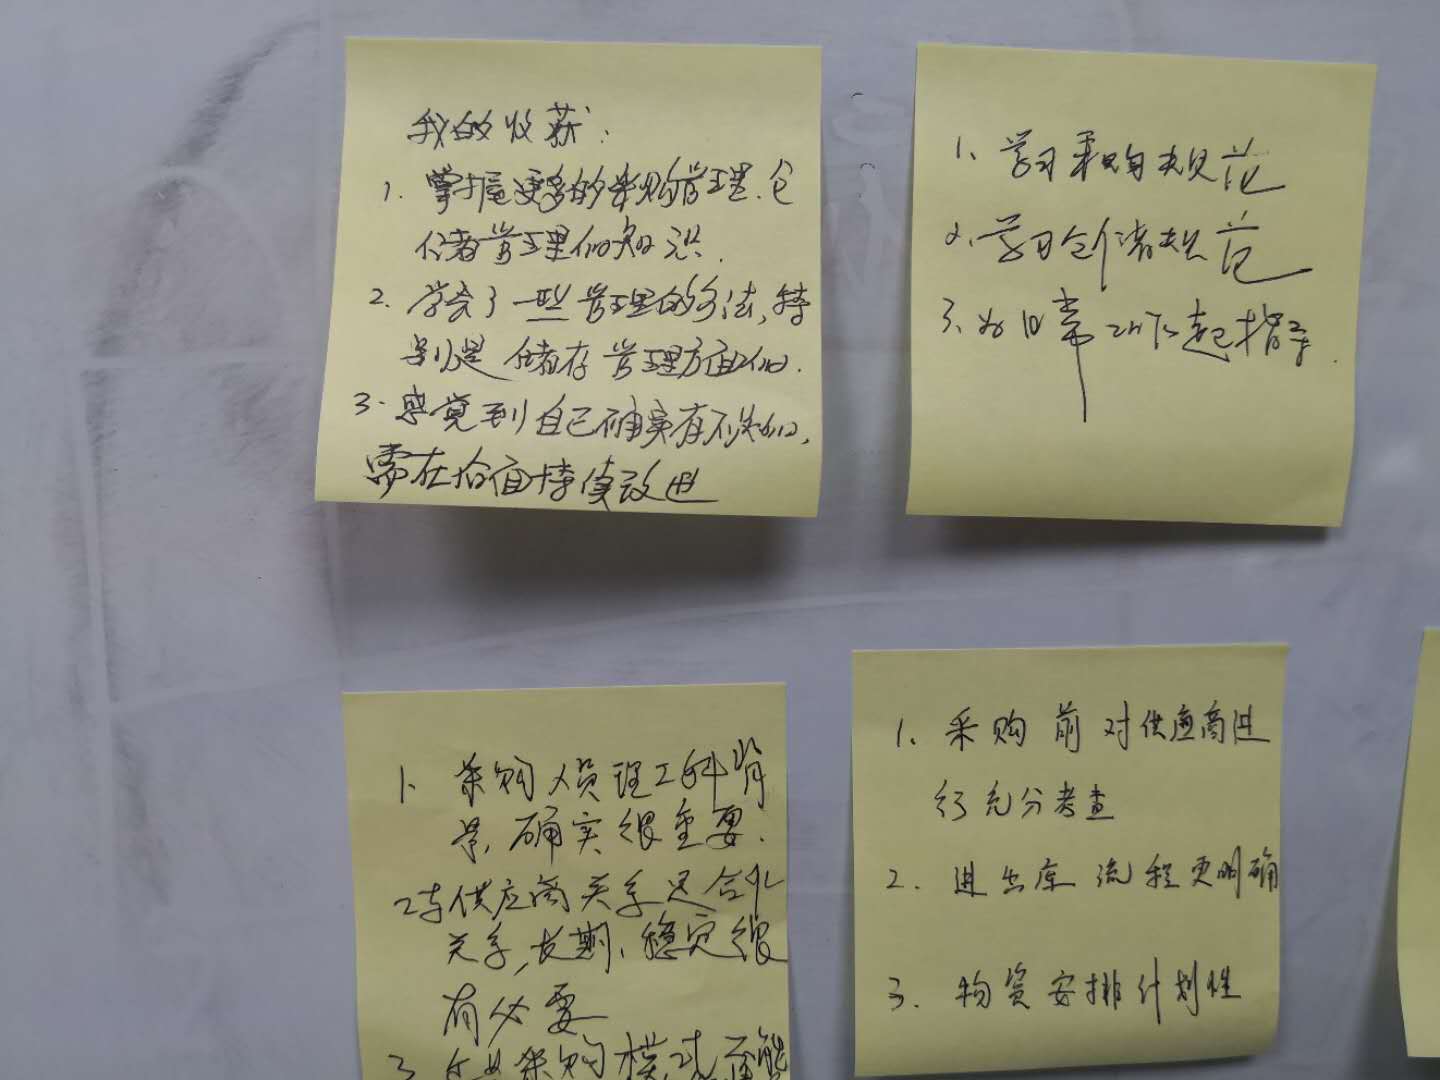 我的收获：
1. 掌握更多的采购管理、仓
储管理的知识.
2. 学会了一些管理的方法,特
别是储存管理方面的.
3. 感觉到自己确实有不足的,
需在后面持续改进
1、学习采购规范
2、学习仓储规范
3、为日常工作起指导.
1、采购人员理工科背
景,确实很重要.
2、与供应商关系是合作
关系,长期、稳定很
有必要
3、企业采购模式不能
1、采购前对供应商进
行充分考查
2、进出库流程更明确
3、物资安排计划性